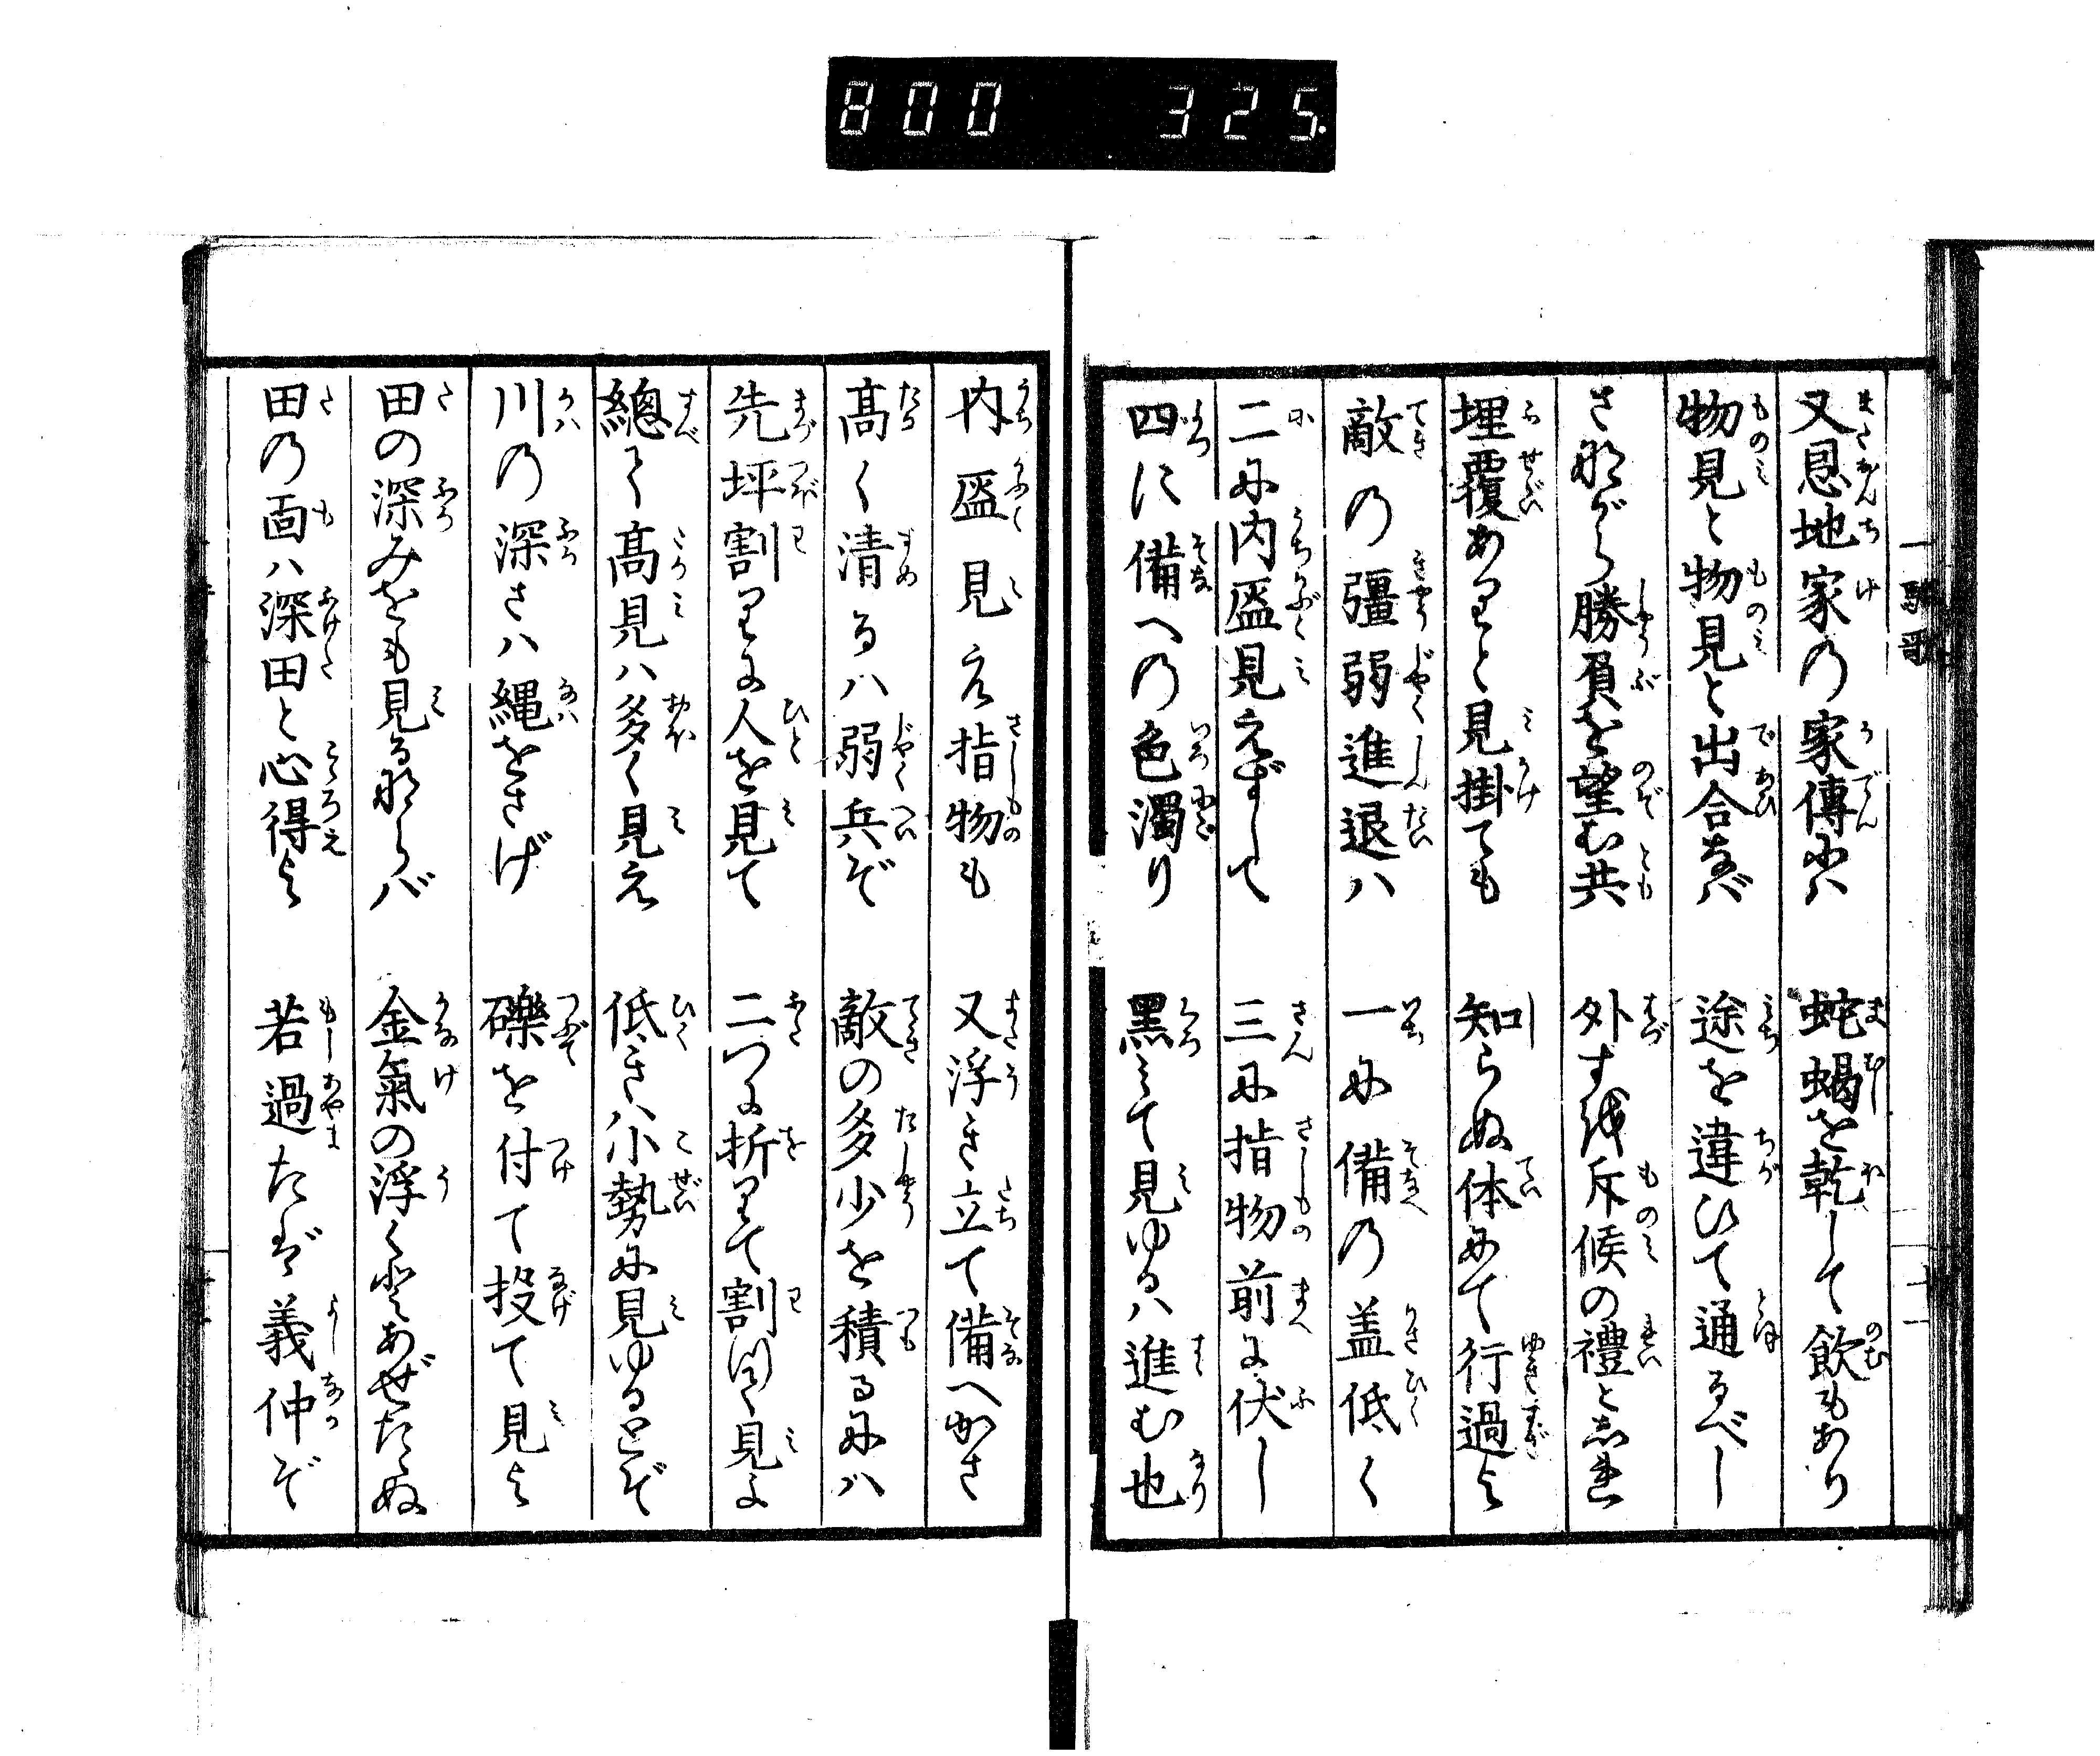 800 325.
又恩地家の家傳にハ 蛇蝎を乾して飲もあり
物見と物見と出合なバ 途を違ひて通るべし
さ那がら勝負を望む共 外す哉斥候の禮と志れ
埋覆ありと見掛ても 知らぬ体にて行過よ
敵の彊弱進退ハ 一に備の蓋低く
二に内盔見えずして 三に指物前に伏し
四に備への色濁り 黒ミて見ゆるハ進む也
内盔見え指物も 又浮き立て備へかさ
髙く清るハ弱兵ぞ 敵の多少を積るにハ
先坪割りに人を見て 二つに折りて割て見よ
總て髙見ハ多く見え 低きハ小勢に見ゆるとぞ
川の深さハ縄をさげ 礫を付て投て見よ
田の深みをも見る那らバ 金氣の浮くとあぜたゝぬ
田の面ハ深田と心得よ 若過たバ義仲ぞ